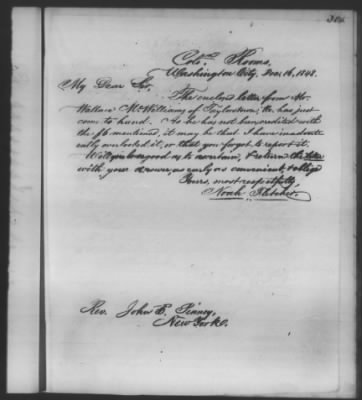 Colo. Rooms,
Washington City, Nov. 16, 1848.
My Dear Sir,
The enclosed letter from Mr.
Wallace McWilliams of Taylorstown, Pa. has just
come to hand. As he has not been credited with
the $6 mentioned, it may be that I have inadvert-
ently overlooked it, or that you forgot to report it.
Will you be so good as to ascertain, & return the letter
with your answer, as early as convenient, & oblige
Yours, most respectfully,
Noah Fletcher.
Rev. John B. Pinney,
New York.